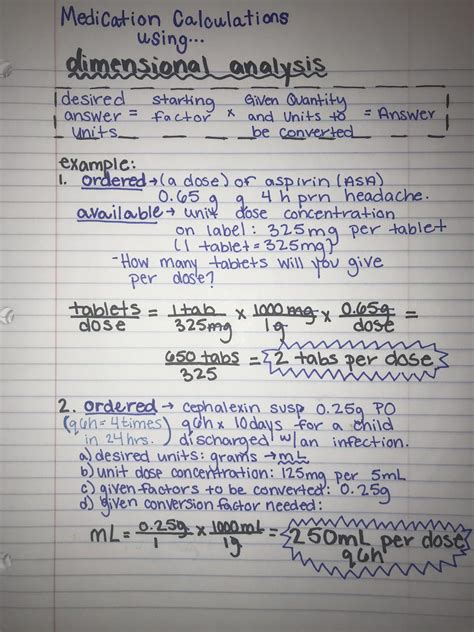 Medication Calculations
using...
dimensional analysis
desired starting Given Quantity
answer = factor x and Units to = Answer
units be converted
example:
1. ordered → (a dose) of aspirin (ASA)
0.65 g q 4 h prn headache.
available → unit dose concentration
on label: 325mg per tablet
(1 tablet = 325mg)
- How many tablets will you give
per dose?
tablets/dose = 1tab/325mg x 1000mg/1g x 0.65g/dose =
650 tabs/325 = 2 tabs per dose
2. ordered → cephalexin susp 0.25g PO
(q6h = 4 times q6h x 10 days for a child
in 24hrs.) discharged w/ an infection.
a) desired units: grams → mL
b) unit dose concentration: 125mg per 5mL
c) given factors to be converted: 0.25g
d) given conversion factor needed:
mL = 0.25g/1 x 1000mL/1g = 250mL per dose
q6h